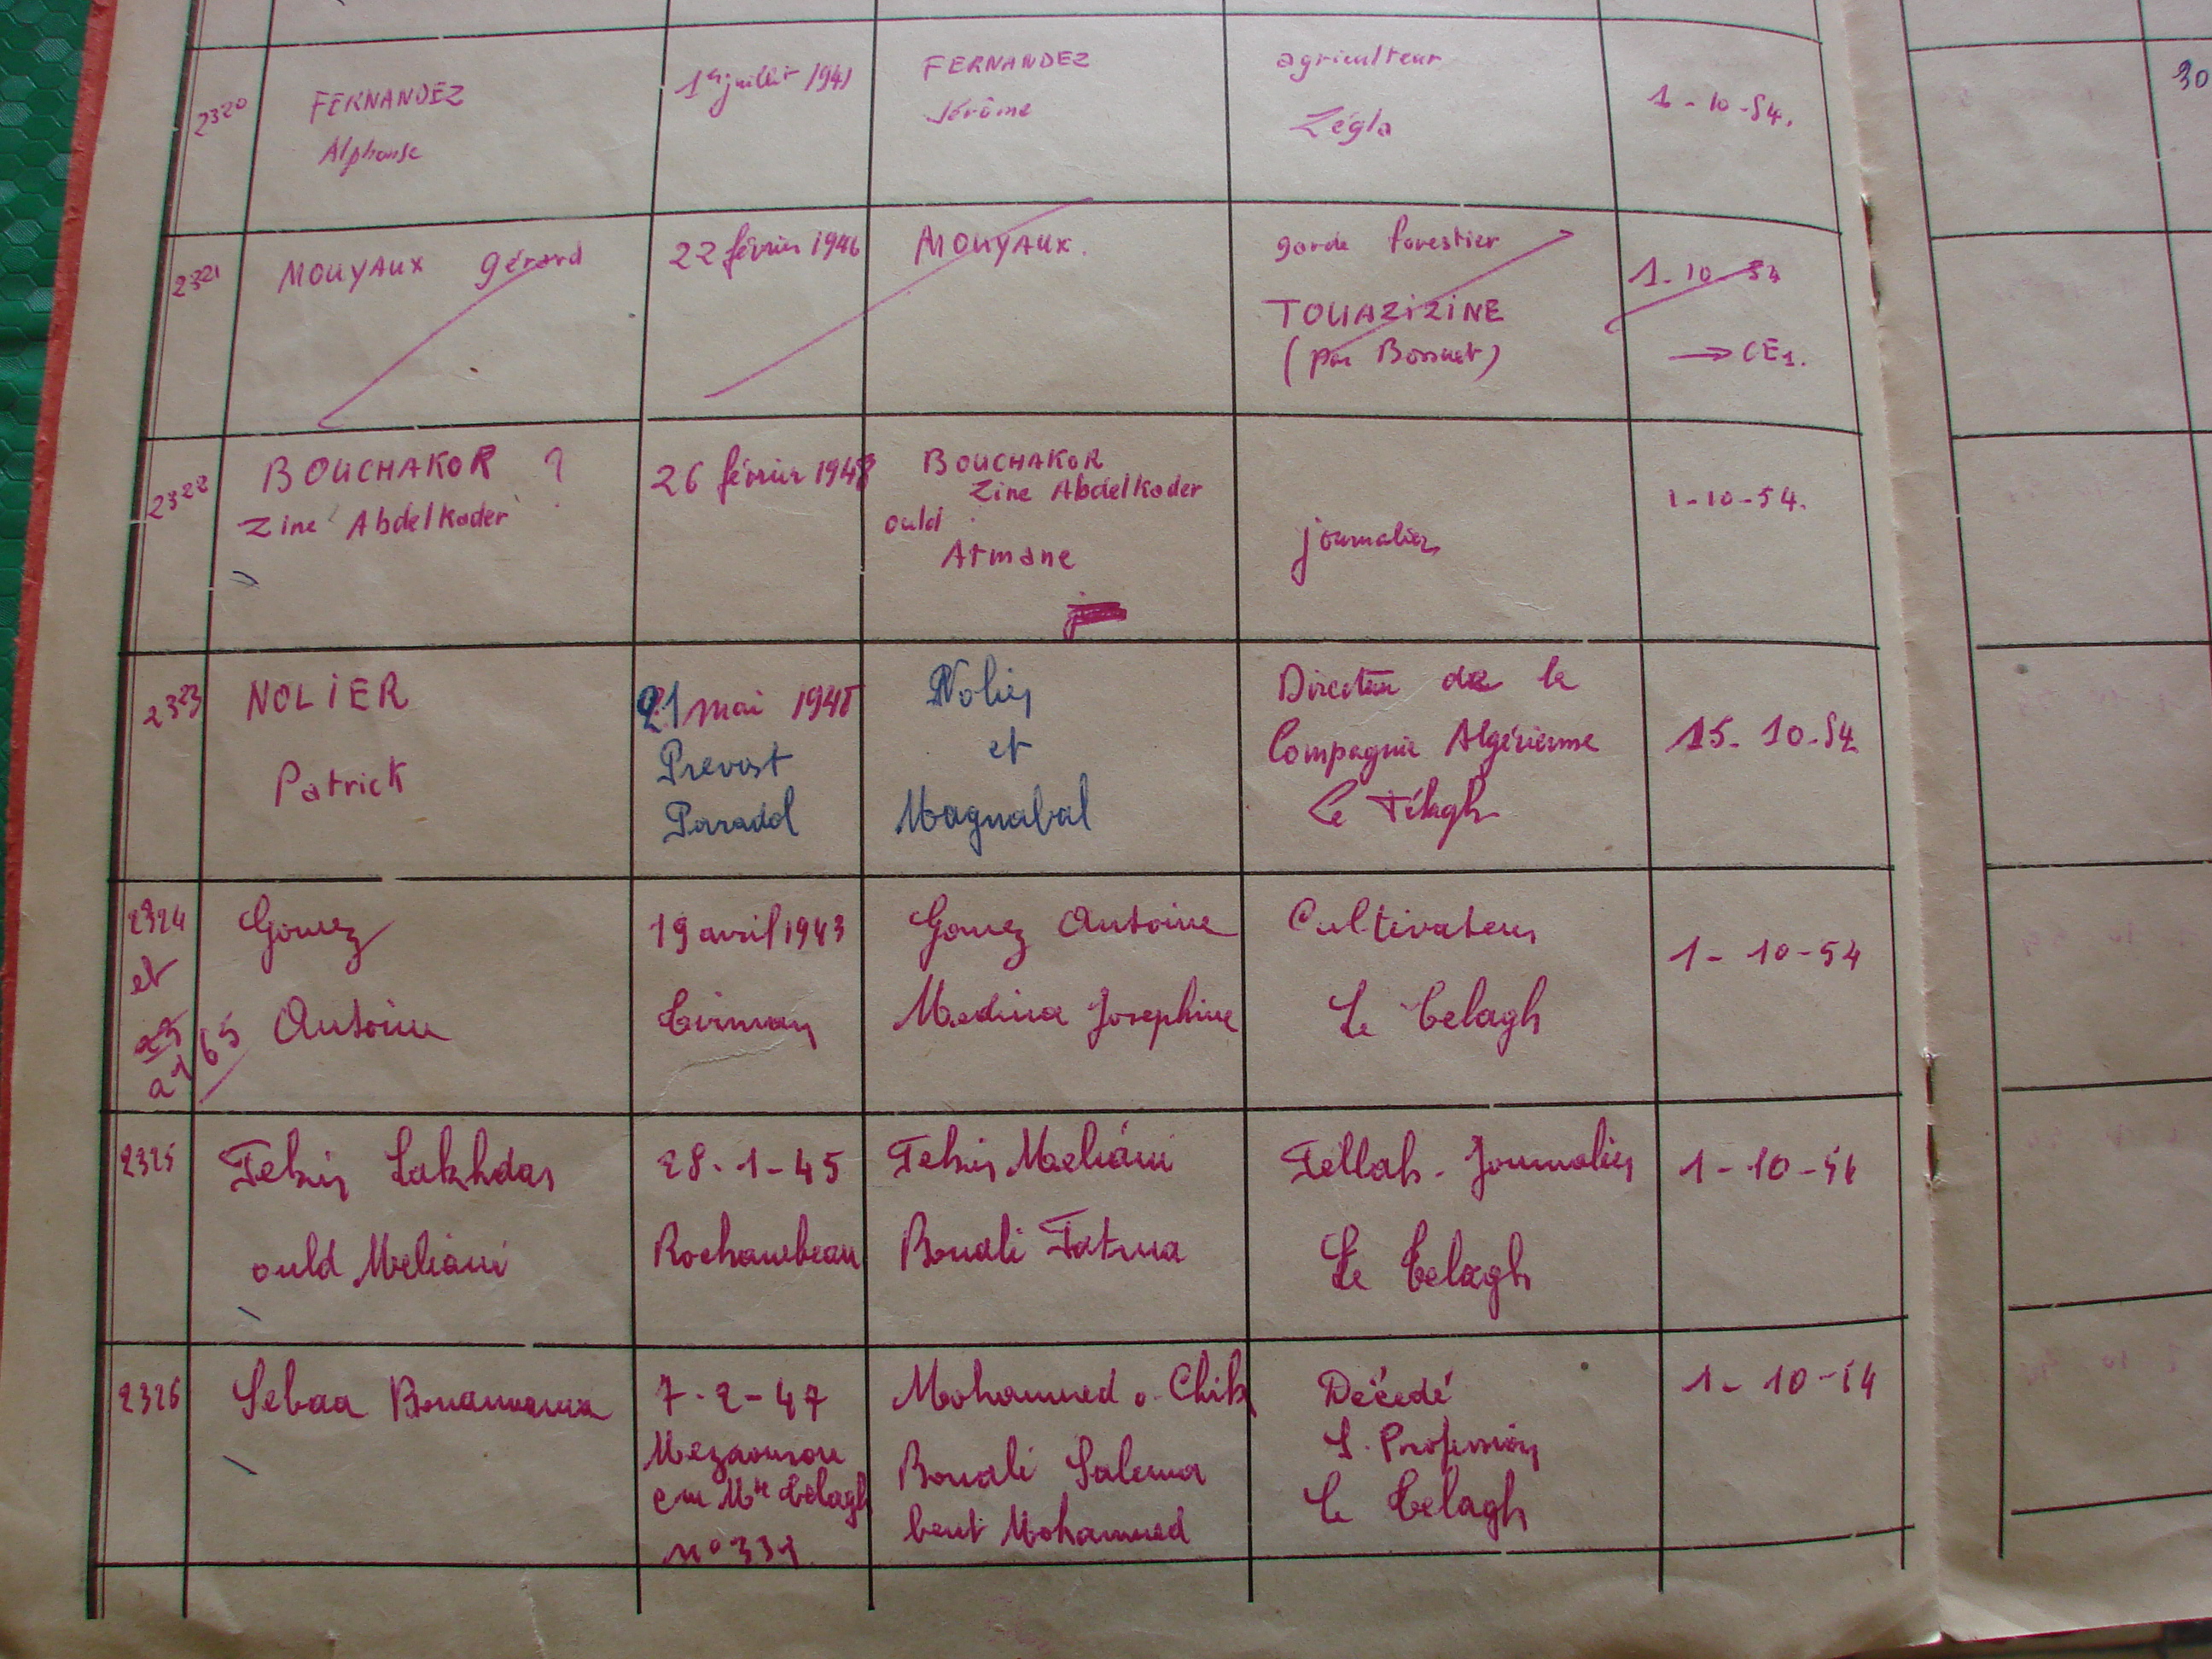 2320 FERNANDEZ 1er juillet 1941 FERNANDEZ agriculteur 1-10-54.
Alphonse Jérôme Zégla
2321 MOUYAUX Gérard 22 février 1946 MOUYAUX. garde forestier 1-10-54
TOUAZIZINE
(par Bossuet) → CE1.
2322 BOUCHAKOR ? 26 février 1948 BOUCHAKOR 1-10-54.
Zine Abdelkader Zine Abdelkader
ould journalier
Atmane
2323 NOLIER 21 mai 1948 Nolier Directeur de la 15-10-54
Patrick Prevost et Compagnie Algérienne
Paradol Magnabal Le Télagh
2324 Gomez 19 avril 1943 Gomez Antoine Cultivateur 1-10-54
et
Antoine Tirman Medina Josephine Le Telagh
65
2325 Fekir Lakhdar 28-1-45 Fekir Meliani Fellah-Journalier 1-10-54
ould Meliani Rochambeau Bouali Fatma Le Telagh
2326 Sebaa Bouamama 7-2-47 Mohammed o. Chikh Décédé 1-10-54
Mezaourou Bouali Salema S. Profession
cne Mte Télagh bent Mohammed Le Telagh
n° 331
30